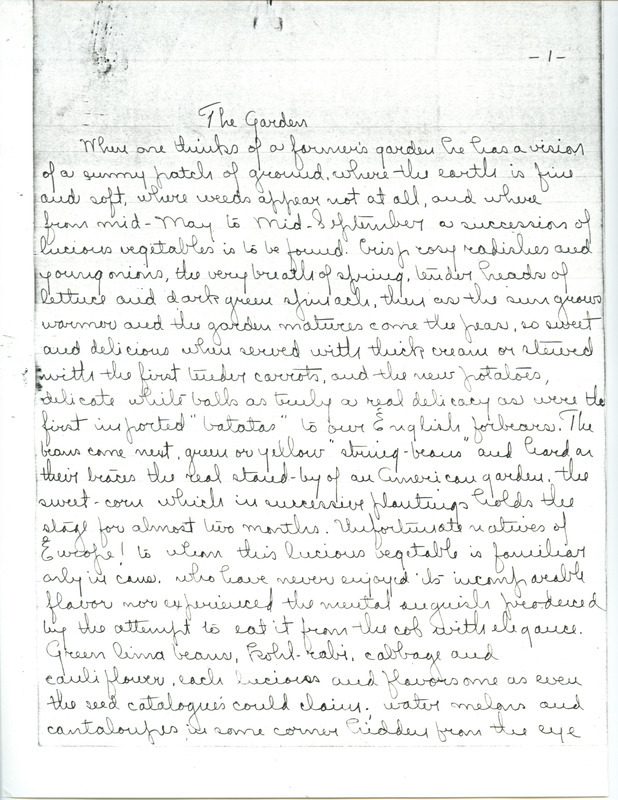 -1-
The Garden
When one thinks of a farmer's garden he has a vision
of a sunny patch of ground, where the earth is fine
and soft, where weeds appear not at all, and where
from mid-May to Mid-September a succession of
lucious vegetables is to be found. Crisp rosy radishes and
young onions, the very breath of spring, tender heads of
lettuce and dark green spinach, then as the sun grows
warmer and the garden matures come the peas, so sweet
and delicious when served with thick cream or stewed
with the first tender carrots, and the new potatoes,
delicate white balls as truly a real delicacy as were the
first imported "batatas" to our English forbears. The
beans come next, green or yellow "string-beans" and hard on
their traces the real stand-by of an American garden, the
sweet-corn which in successive plantings holds the
stage for almost two months. Unfortunate natives of
Europe! to whom this lucious vegetable is familiar
only in cans. who have never enjoyed its incomparable
flavor nor experienced the mental anguish produced
by the attempt to eat it from the cob with elegance.
Green lima beans, Kohl-rabi, cabbage and
cauliflower, each lucious and flavorsome as even
the seed catalogues could claim. water melons and
cantaloupes in some corner hidden from the eye